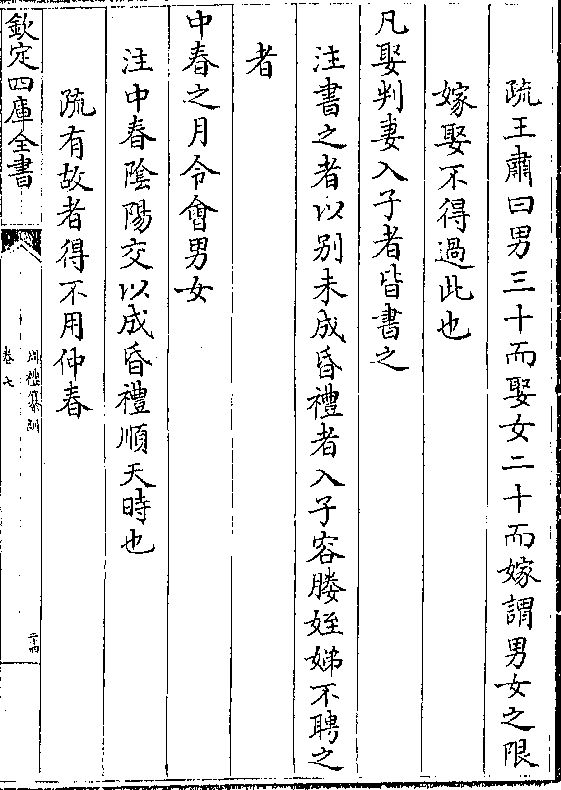 疏王肅曰男三十而娶女二十而嫁謂男女之限
嫁娶不得過此也
凡娶判妻入子者皆書之
注書之者以别未成昏禮者入子容媵姪娣不聘之
者
中春之月令會男女
注中春陰陽交以成昏禮順天時也
疏有故者得不用仲春
欽定四庫全書
周禮纂訓
卷七
二十四